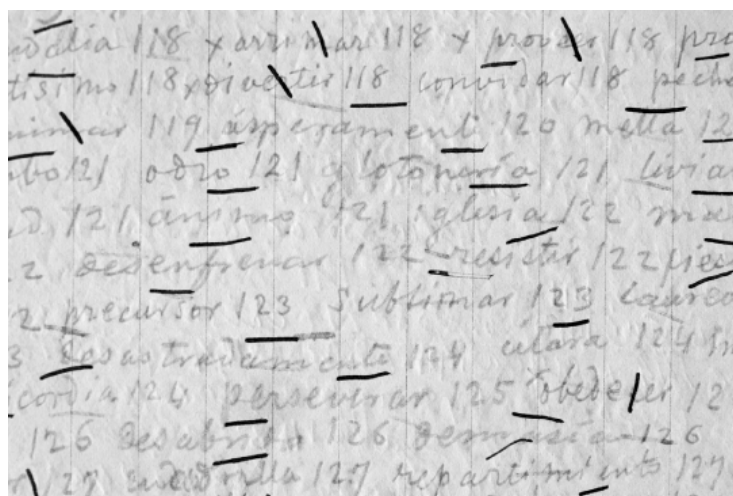 118 x arrimar 118 x proveer 118
118 x divertir 118 convidar 118
119 ásperamente 120 mella 12
121 odio 121 glotonería 121 livia
121 ánimo 121 iglesia 122
desenfrenar 122 resistir 122
precursor 123 sublimar 123 laureo
desastradamente 124 124
cordia 124 perseverar 125 obedecer 12
126 desabrido 126 demasía 126
127 127 repartimiento 127